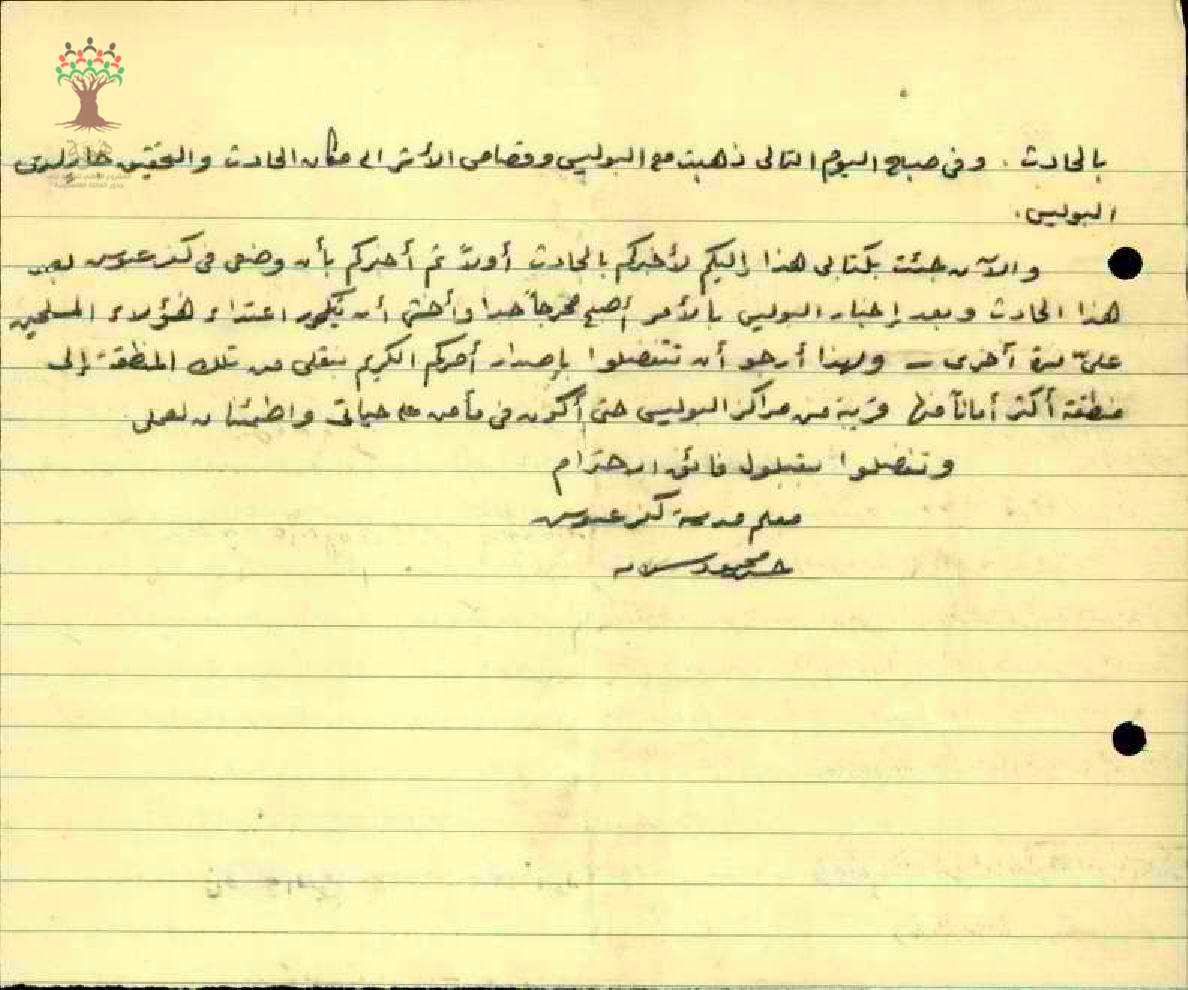 بالحادث . وفى صباح اليوم التالى ذهبت مع البوليس وقصاص الأثر الى مكان الحادث والتحقيق جار لدى
البوليس .
والآن جئت بكتابى هذا إليكم لأخبركم بالحادث أولاً ثم أخبركم بأن وضعى فى كفر عبوش بعد
هذا الحادث وبعد إخبار البوليس بالأمر أصبح محرجاً جدا وأخشى أن يتكرر اعتداء هؤلاء المسلحين
علىّ مرة أخرى - ولهذا أرجو أن تتفضلوا بإصدار أمركم الكريم بنقلى من تلك المنطقة إلى
منطقة أكثر أماناً منها قريبة من مراكز البوليس حتى أكون فى مأمن على حياتى واطمئنان لعملى
وتفضلوا بقبول فائق الاحترام
معلم مدرسة كفر عبوش
حسن محمود